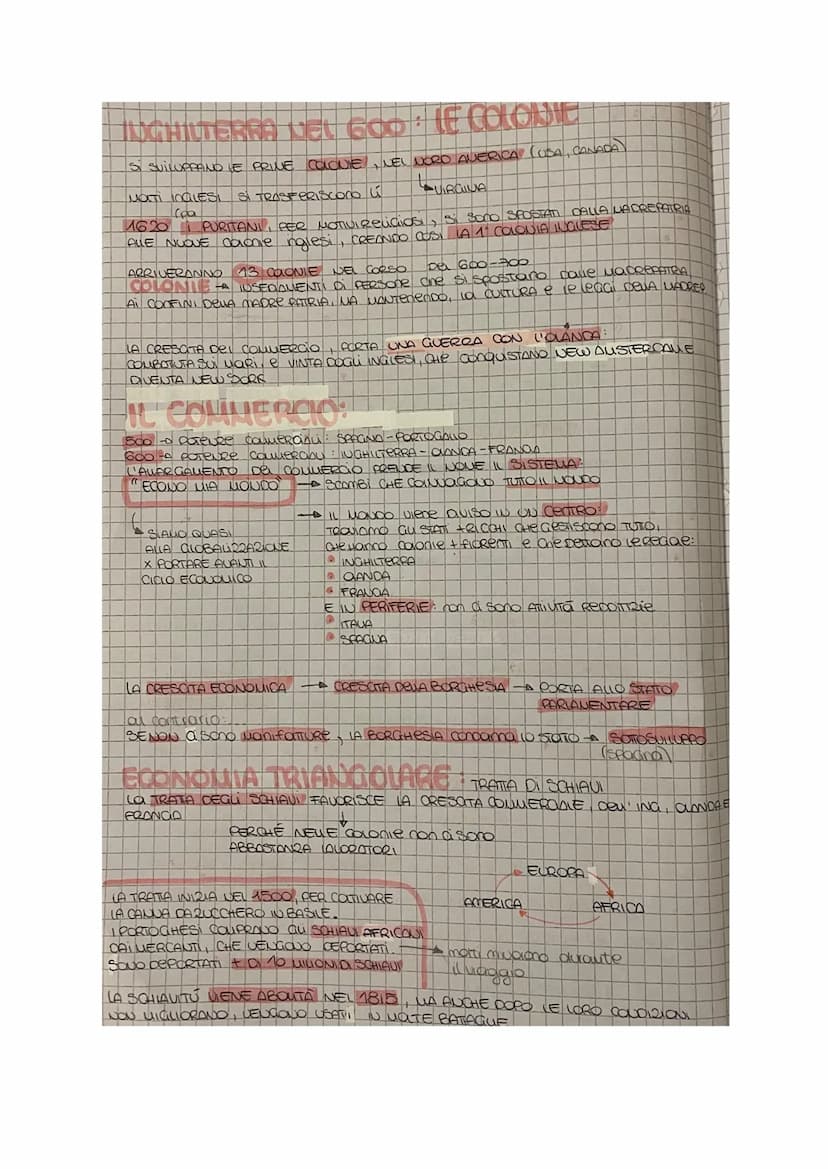 INGHILTERRA NEL 600: LE COLONIE
SI SVILUPPANO LE PRIME COLONIE, NEL NORD AMERICA (USA, CANADA)
VIRGINIA
MOLTI INGLESI SI TRASFERISCONO LÍ
1620 I PURITANI, PER MOTIVI RELIGIOSI, SI SONO SPOSTATI DALLA MADREPATRIA
ALLE NUOVE colonie inglesi, CREANDO COSÌ LA 1ª COLONIA INGLESE
ARRIVERANNO 13 COLONIE NEL CORSO DEL 600-700
COLONIE → INSEDIAMENTI DI PERSONE CHE SI SPOSTANO DALLE MADREPATRIA
AI CONFINI DELLA MADRE PATRIA, MA MANTENENDO, LA CULTURA E LE LEGGI DELLA MADRE P
LA CRESCITA DEL COMMERCIO, PORTA UNA GUERRA CON L'OLANDA:
COMBATTUTA SUI MARI, E VINTA DAGLI INGLESI, CHE CONQUISTANO NEW AUSTERDAME
DIVENTA NEW YORK
IL COMMERCIO:
500 → POTENZE COMMERCIALI: SPAGNA-PORTOGALLO
600 → POTENZE COMMERCIALI: INGHILTERRA-OLANDA-FRANCIA
L'ALLARGAMENTO DEL COMMERCIO PRENDE IL NOME IL SISTEMA:
"ECONOMIA MONDO" → SCAMBI CHE COINVOLGONO TUTTO IL MONDO
→ IL MONDO VIENE DIVISO IN UN CENTRO:
SIAMO QUASI
TROVIAMO GLI STATI + RICCHI CHE GESTISCONO TUTTO,
ALLA GLOBALIZZAZIONE
CHE HANNO COLONIE + FIORENTI E CHE DETTANO LE REGOLE:
X PORTARE AVANTI IL
• INGHILTERRA
CICLO ECONOMICO
• OLANDA
• FRANCIA
E IN PERIFERIE: NON CI SONO ATTIVITÁ REDDITIZIE
• ITALIA
• SPAGNA
LA CRESCITA ECONOMICA → CRESCITA DELLA BORGHESIA → PORTA ALLO STATO
PARLAMENTARE
al contrario:...
SE NON CI SONO MANIFATTURE, LA BORGHESIA CONDANNA LO STATO → SOTTOSVILUPPO
(SPAGNA)
ECONOMIA TRIANGOLARE: TRATTA DI SCHIAVI
LA TRATTA DEGLI SCHIAVI FAVORISCE LA CRESCITA COMMERCIALE, DELL'ING, OLANDA E
FRANCIA
PERCHÉ NELLE COLONIE NON CI SONO
ABBASTANZA LAVORATORI
EUROPA
AMERICA
AFRICA
LA TRATTA INIZIA NEL 1500, PER COLTIVARE
LA CANNA DA ZUCCHERO IN BASILE.
I PORTOGHESI COMPRANO GLI SCHIAVI AFRICANI
DAI MERCANTI, CHE VENGONO DEPORTATI.
SONO DEPORTATI + DI 10 MILIONI DI SCHIAVI
→ molti muoiono durante
il viaggio
LA SCHIAVITÚ VIENE ABOLITA NEL 1815, MA ANCHE DOPO LE LORO CONDIZIONI
NON MIGLIORANO, VENGONO USATI IN MOLTE BATTAGLIE